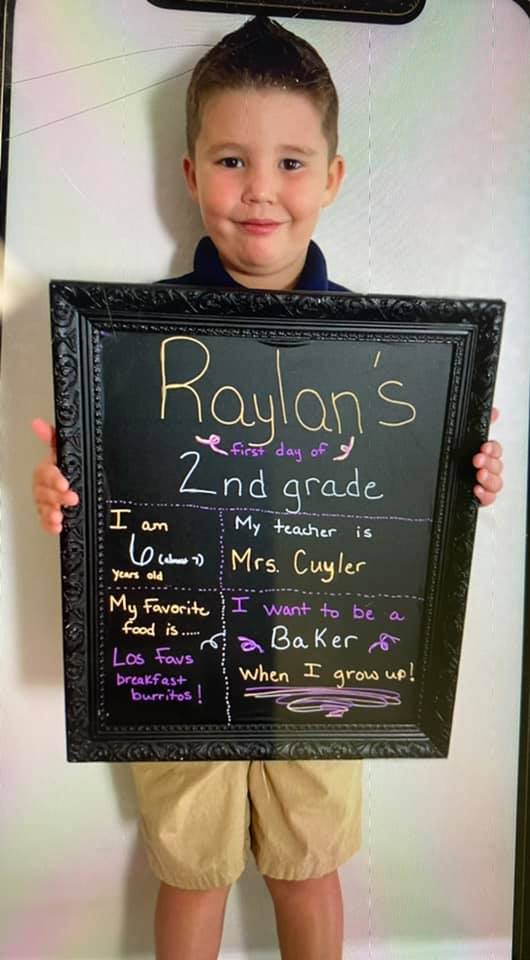 Raylan's
first day of
2nd grade
I am
6 (almost 7)
years old
My teacher is
Mrs. Cuyler
My Favorite
food is.....
Los Favs
breakfast
burritos!
I want to be a
Baker
When I grow up!